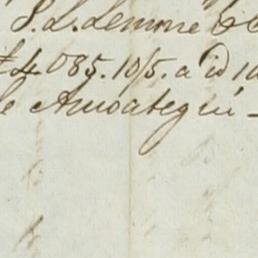 S. L. Lemme & C
£4085.10/5. a id 10
le Amoategui -